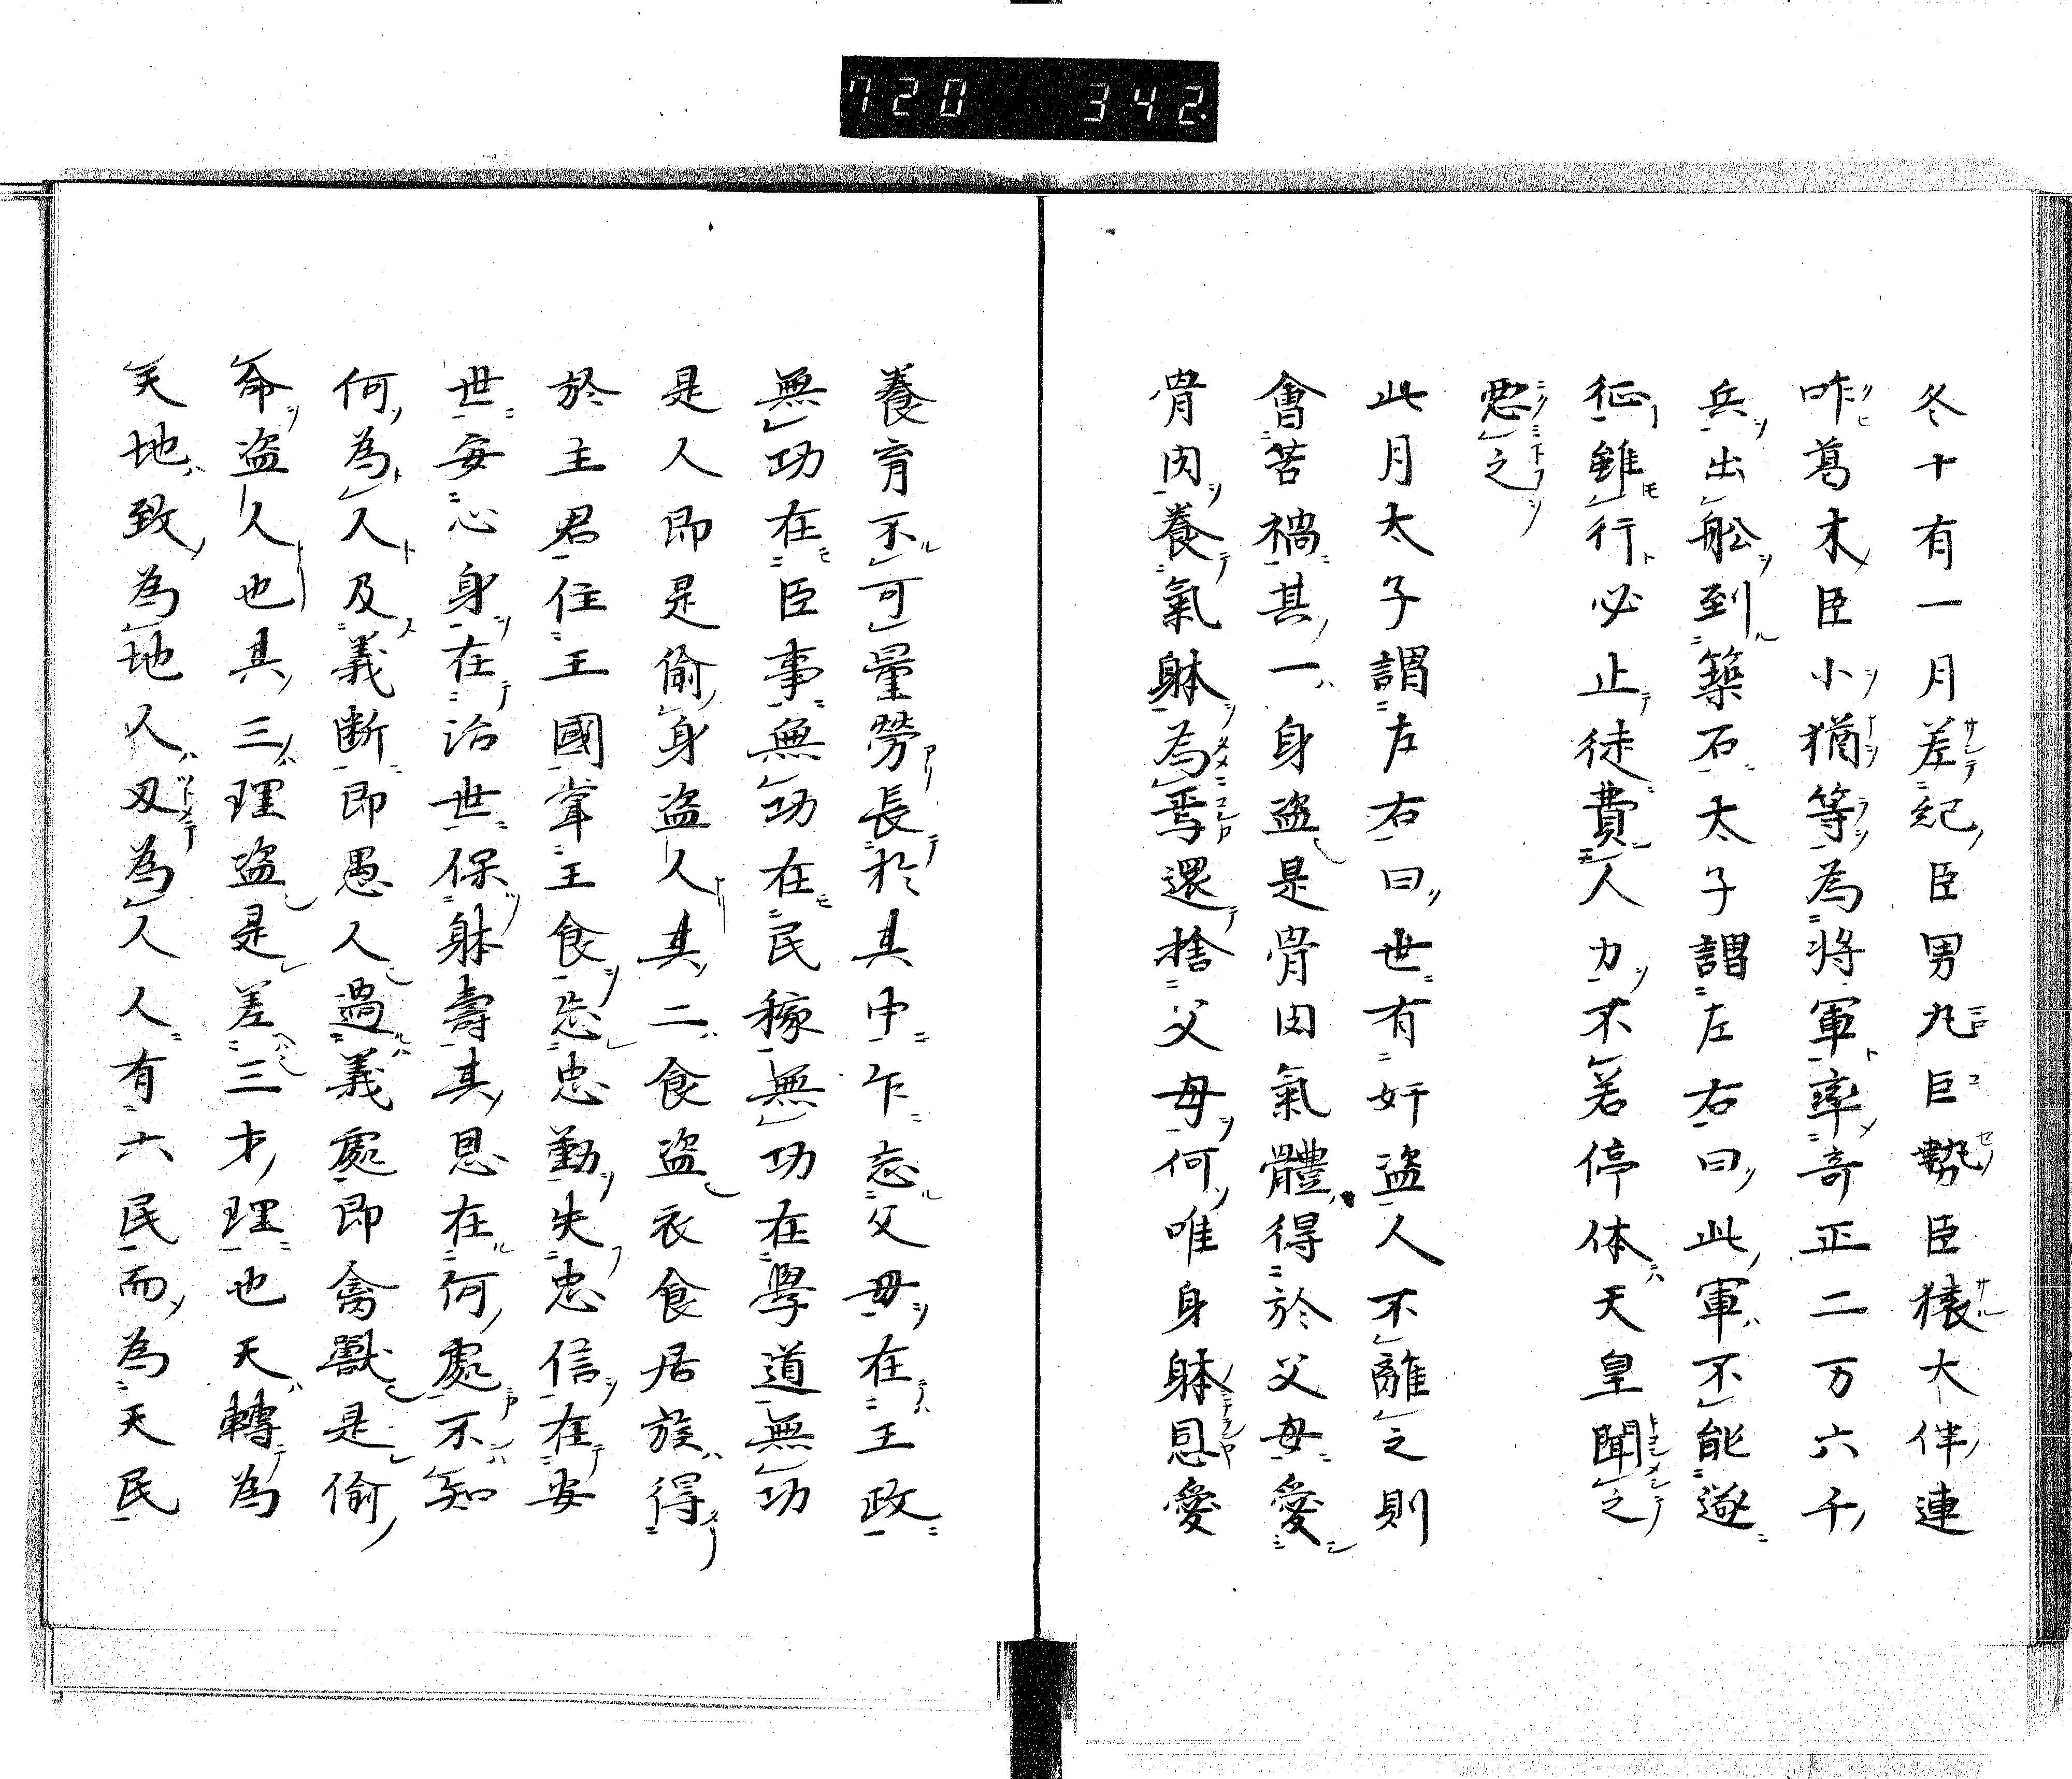 720 342.
冬十有一月差紀臣男丸巨勢臣猿大伴連
咋葛木臣小猶等為将軍率奇正二万六千
兵出舩到築石太子謂左右曰此軍不能遂
征雖行必止徒費人力不若停体天皇聞之
惡之
此月太子謂左右曰世有奸盗人不離之則
會苦禍其一身盗是骨肉氣體得於父母愛
骨肉養氣躰為焉還捨父母何唯身躰恩愛
養育不可量勞長於其中乍忘父母在王政
無功在臣事無功在民稼無功在學道無功
是人即是偷身盗人其二食盗衣食居族得
於主君住王國常王食忘忠勤失忠信在安
世安心身在治世保躰壽其恩在何處不知
何為人及義断即愚人過義處即禽獸是偷
命盗人也其三理盗是差三才理也天轉為
天地致為地人及為人人有六民而為天民